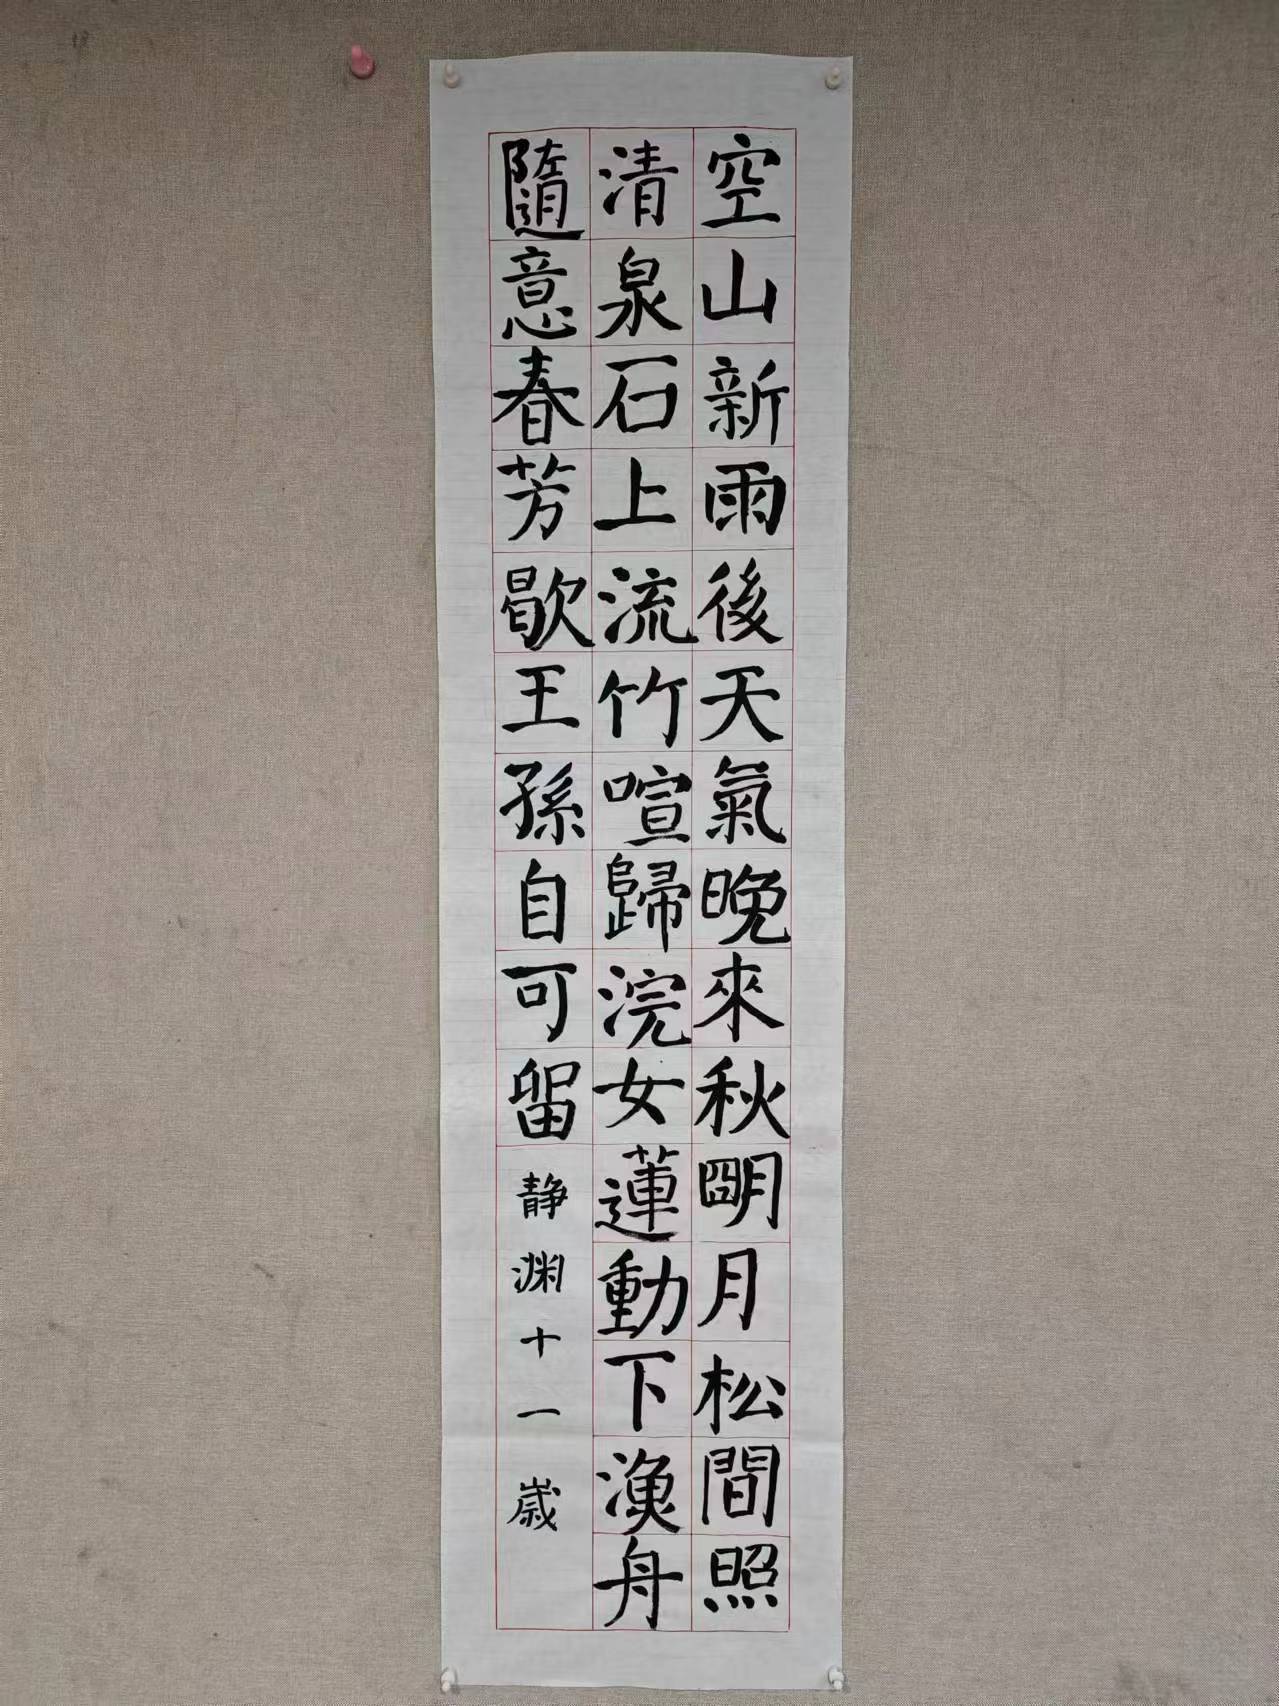 空山新雨後天氣晚來秋明月松間照
清泉石上流竹喧歸浣女蓮動下漁舟
隨意春芳歇王孫自可留静渊十一歲